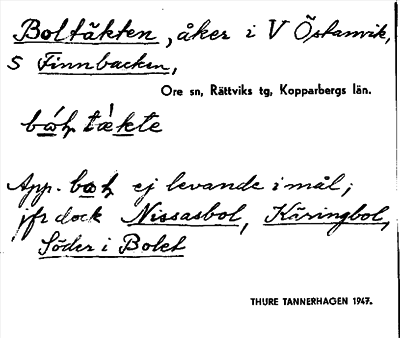 Boltäkten, åker i V Östanvik,
S Finnbacken,
Ore sn, Rättviks tg, Kopparbergs län.
App. ej levande i mål;
jfr dock Nissasbol, Käringbol,
Söder i Bolet
THURE TANNERHAGEN 1947.